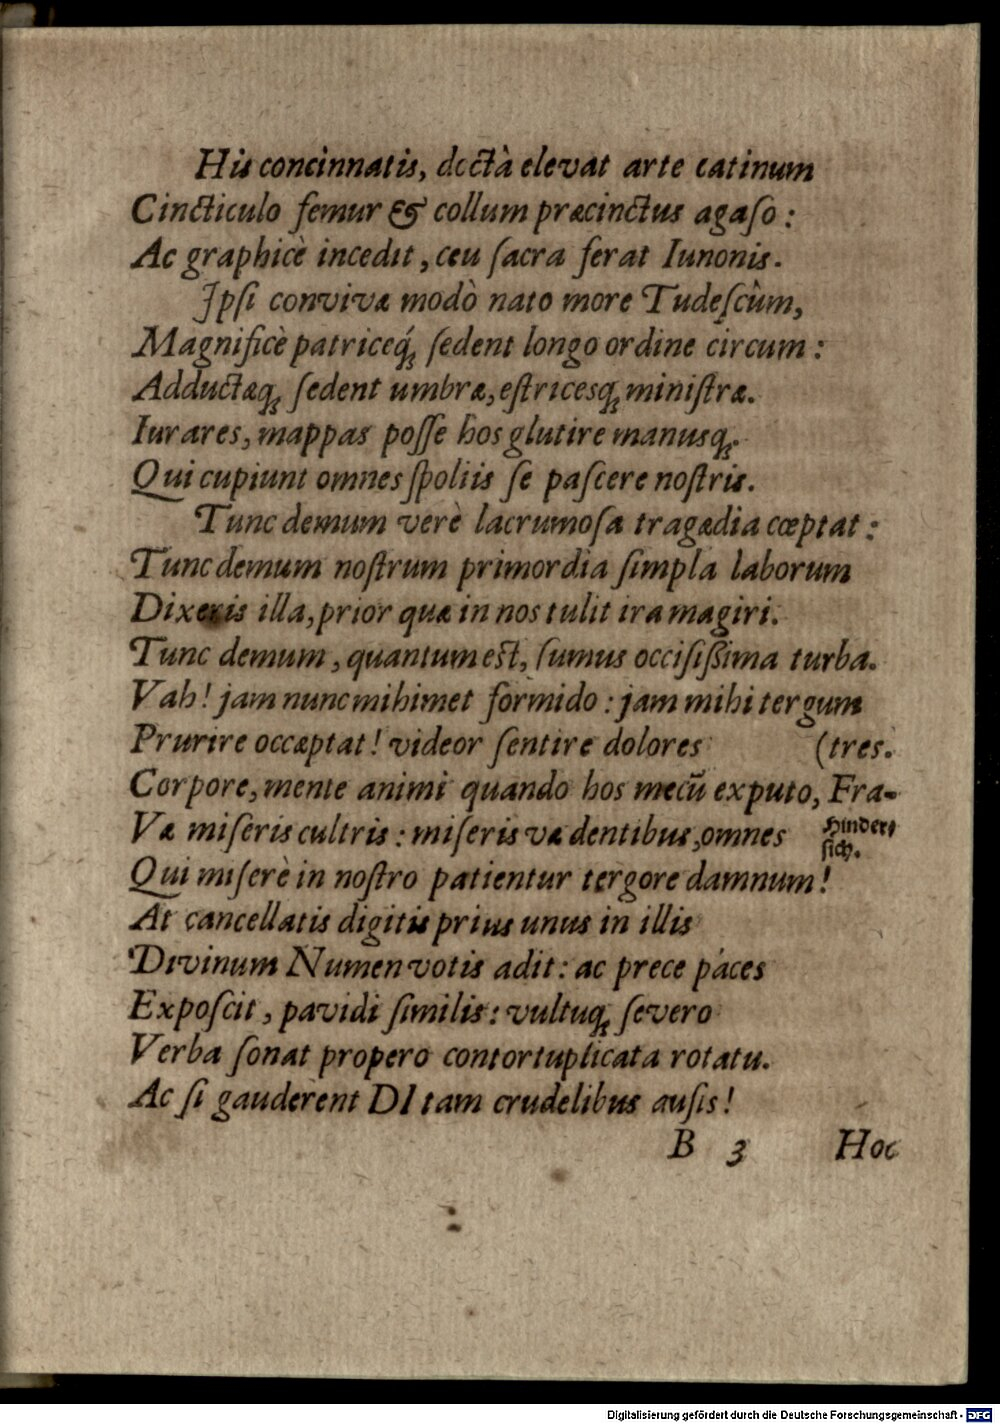 His concinnatis, doctà elevat arte catinum
Cincticulo femur & collum præcinctus agaſo:
Ac graphicè incedit, ceu ſacra ferat Iunonis.
Ipſi convivæ modò nato more Tudeſcûm,
Magnificè patriceq́ꝫ ſedent longo ordine circum:
Adductæqꝫ ſedent umbræ, eſtricesqꝫ miniſtræ.
Iurares, mappas poſſe hos glutire manusqꝫ.
Qui cupiunt omnes ſpoliis ſe paſcere noſtris.
Tunc demum verè lacrumoſa tragædia cœptat:
Tunc demum noſtrum primordia ſimpla laborum
Dixeris illa, prior quæ in nos tulit ira magiri.
Tunc demum, quantum est, ſumus occiſiſſima turba.
Vah! jam nunc mihimet formido: jam mihi tergum
Prurire occæptat! videor ſentire dolores (tres.
Corpore, mente animi quando hos mecū exputo, Fra-
Væ miſeris cultris: miſeris væ dentibus, omnes
Hinder⸗
ſich.
Qui miſerè in noſtro patientur tergore damnum!
At cancellatis digitis prius unus in illis
Divinum Numen votis adit: ac prece paces
Expoſcit, pavidi ſimilis: vultuqꝫ ſevero
Verba ſonat propero contortuplicata rotatu.
Ac ſi gauderent DI tam crudelibus auſis!
B 3 Hoc
Digitalisierung gefördert durch die Deutsche Forschungsgemeinschaft - DFG